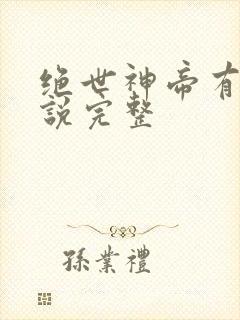 绝世神帝有
說完整
孫業禮